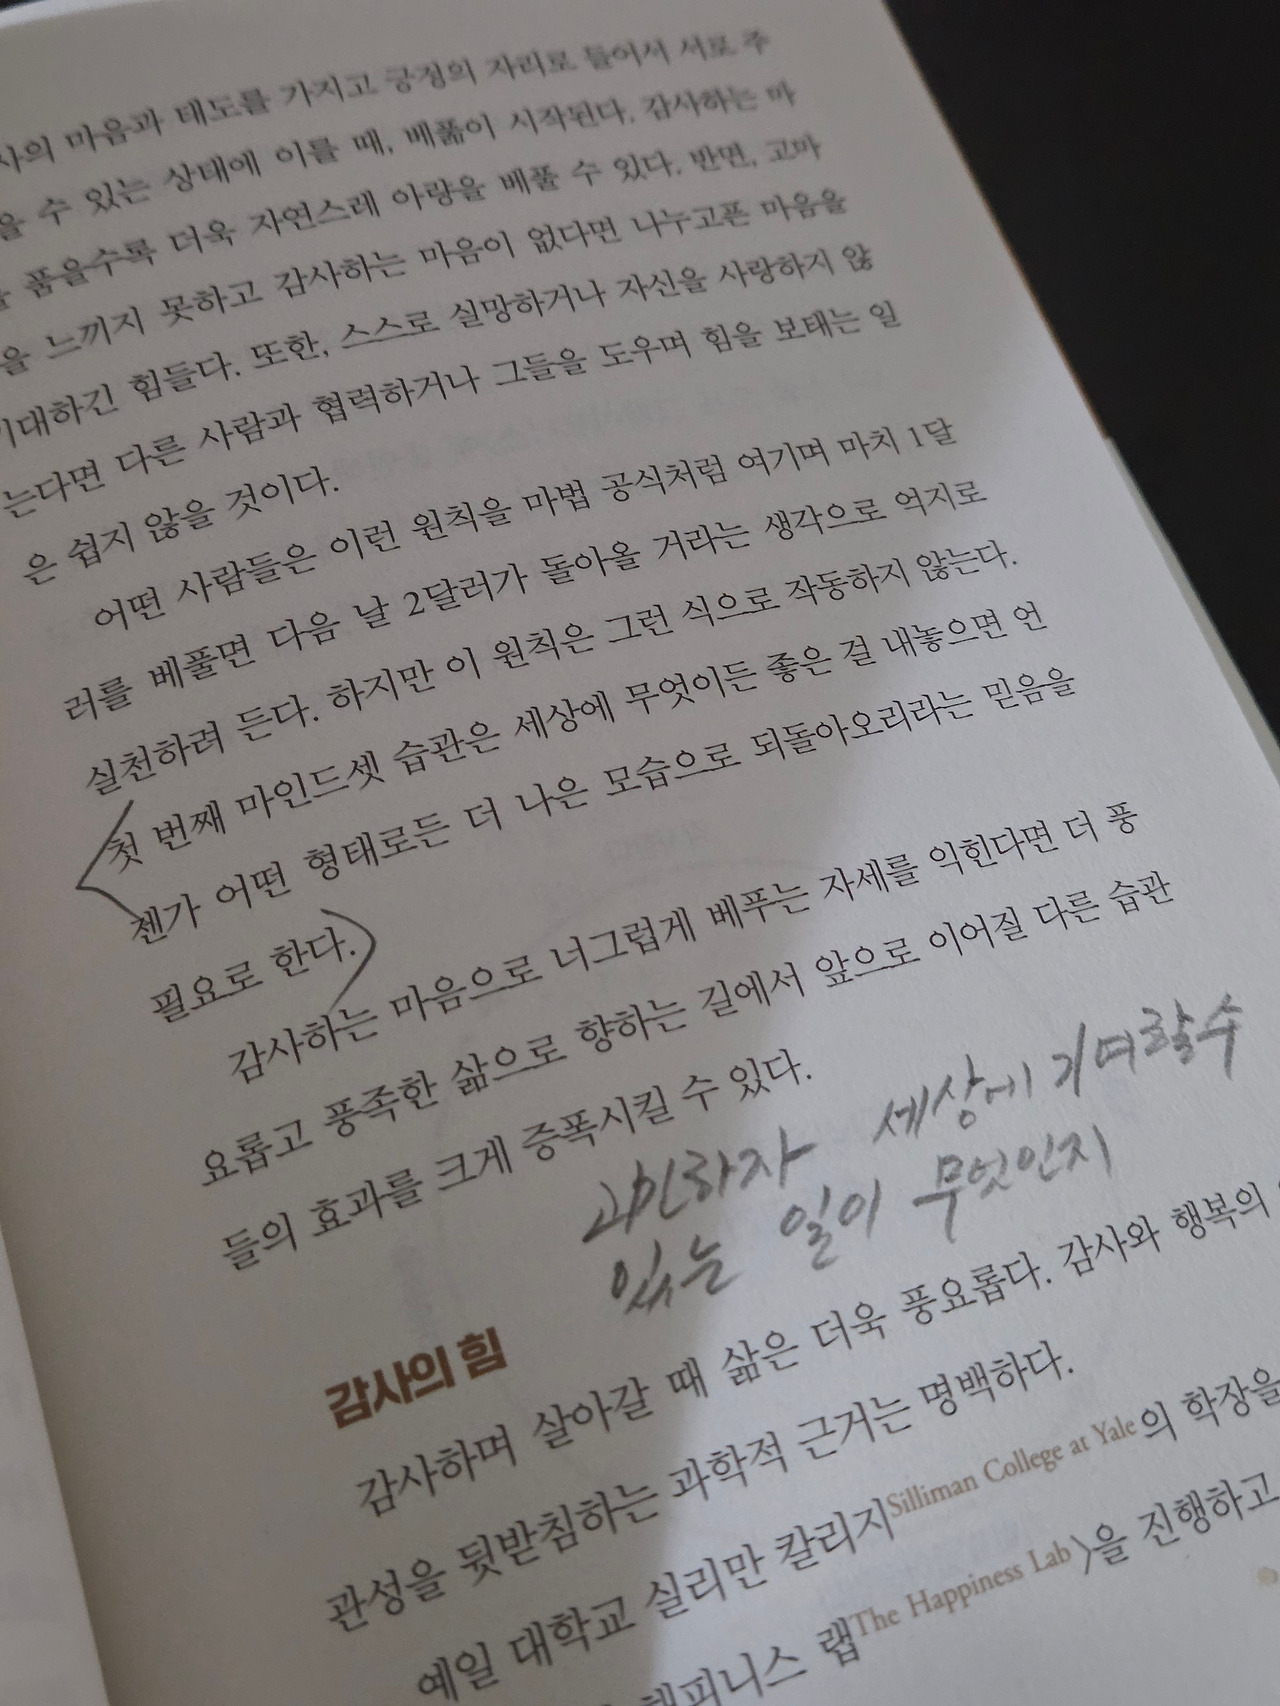 사의 마음과 태도를 가지고 긍정의 자리로 들어서 서로 주
을 수 있는 상태에 이를 때, 베풂이 시작된다. 감사하는 마
품을수록 더욱 자연스레 아량을 베풀 수 있다. 반면, 고마
을 느끼지 못하고 감사하는 마음이 없다면 나누고픈 마음을
기대하긴 힘들다. 또한, 스스로 실망하거나 자신을 사랑하지 않
는다면 다른 사람과 협력하거나 그들을 도우며 힘을 보태는 일
은 쉽지 않을 것이다.
어떤 사람들은 이런 원칙을 마법 공식처럼 여기며 마치 1달
러를 베풀면 다음 날 2달러가 돌아올 거라는 생각으로 억지로
실천하려 든다. 하지만 이 원칙은 그런 식으로 작동하지 않는다.
첫 번째 마인드셋 습관은 세상에 무엇이든 좋은 걸 내놓으면 언
젠가 어떤 형태로든 더 나은 모습으로 되돌아오리라는 믿음을
필요로 한다.
감사하는 마음으로 너그럽게 베푸는 자세를 익힌다면 더 풍
요롭고 풍족한 삶으로 향하는 길에서 앞으로 이어질 다른 습관
들의 효과를 크게 증폭시킬 수 있다.
고민하자 세상에 기여할 수
있는 일이 무엇인지
감사의 힘
감사하며 살아갈 때 삶은 더욱 풍요롭다. 감사와 행복의
관성을 뒷받침하는 과학적 근거는 명백하다.
예일 대학교 실리만 칼리지Silliman College at Yale의 학장을
해피니스 랩The Happiness Lab〉을 진행하고